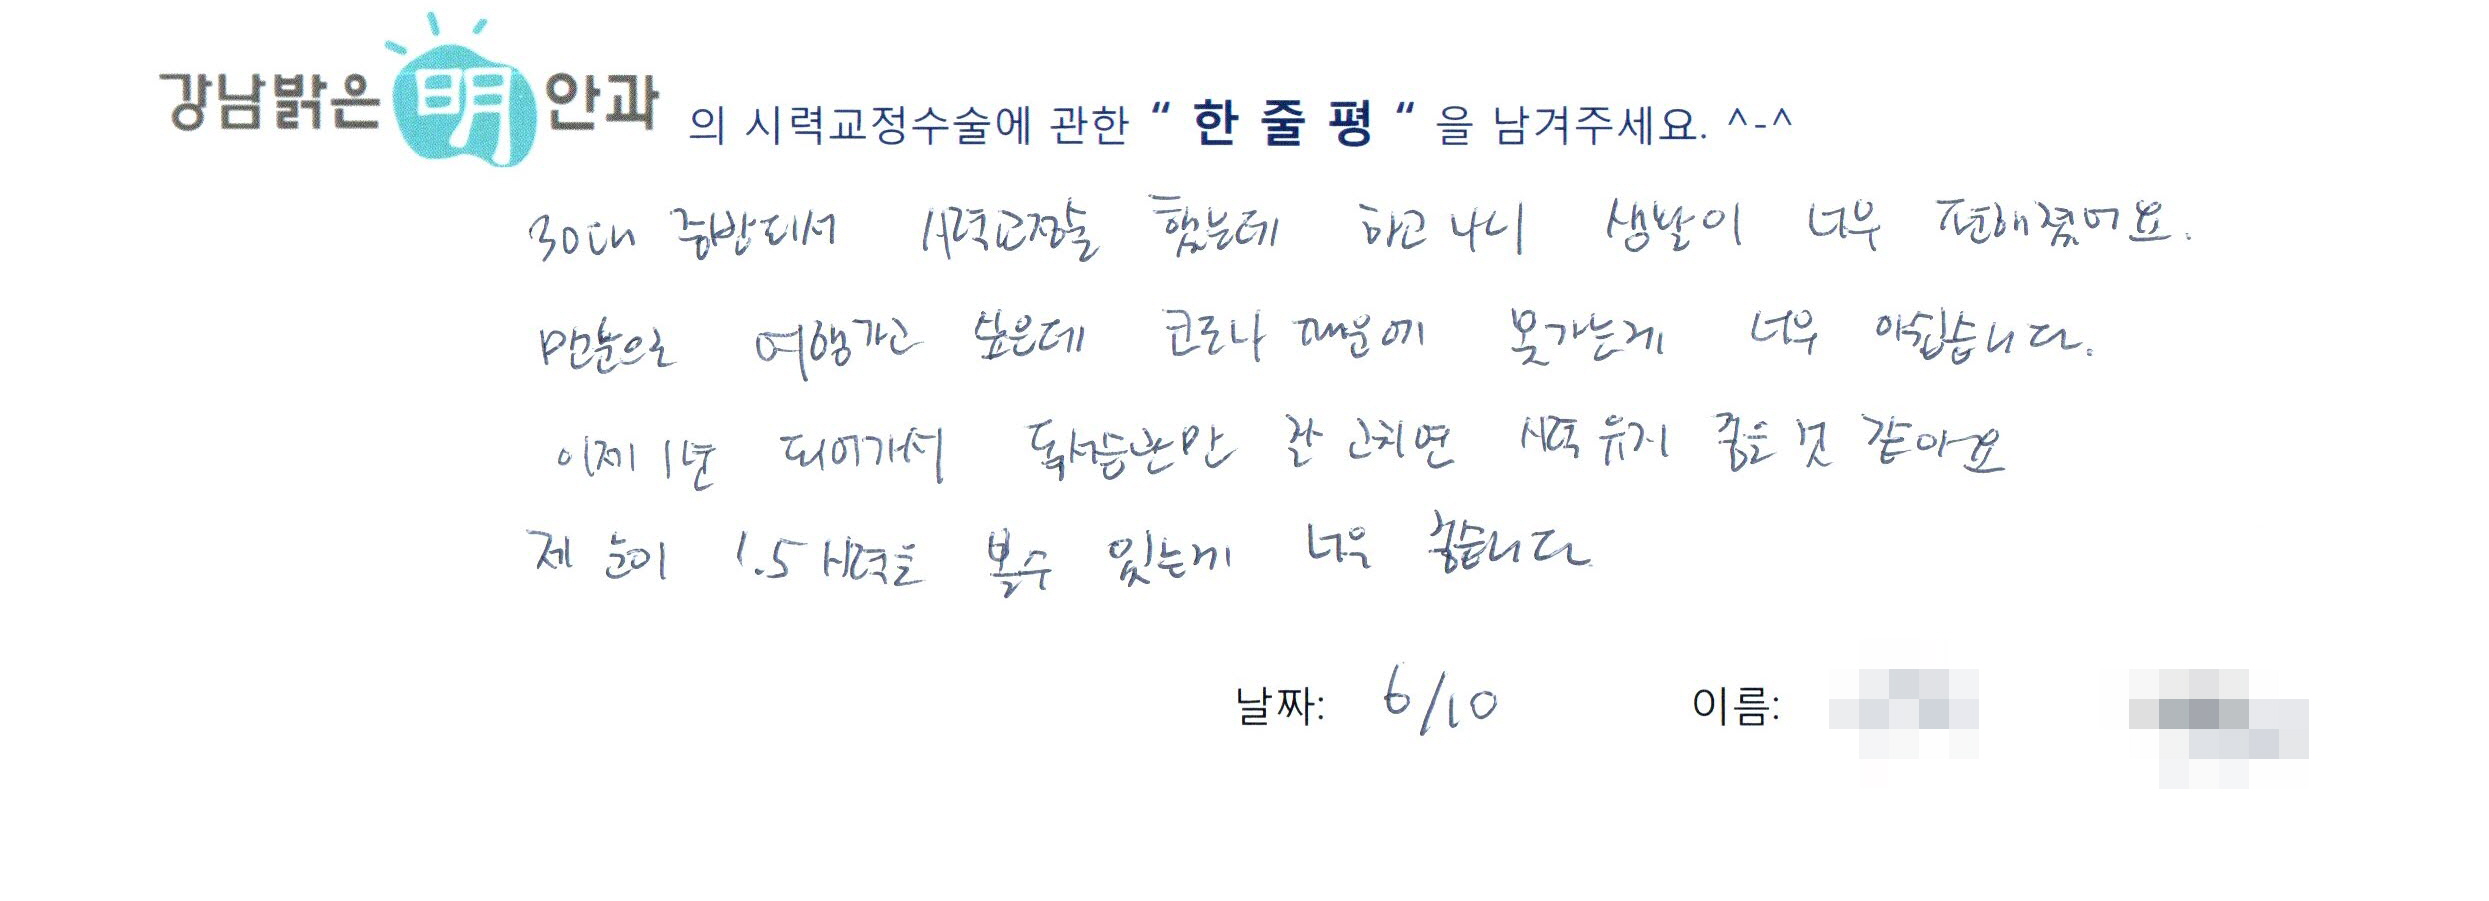 강남밝은 明 안과 의 시력교정수술에 관한 “ 한 줄 평 “ 을 남겨주세요. ^-^
30대 중반되서 시력교정술 했는데 하고나니 생활이 너무 편해졌어요.
맨눈으로 여행가고 싶은데 코로나 때문에 못가는게 너무 아쉽습니다.
이제 1년 되어가서 독서습관만 잘 고치면 시력 유지 좋을 것 같아요
제 눈이 1.5 시력을 볼수 있는게 너무 좋습니다.
날짜: 6/10 이름: